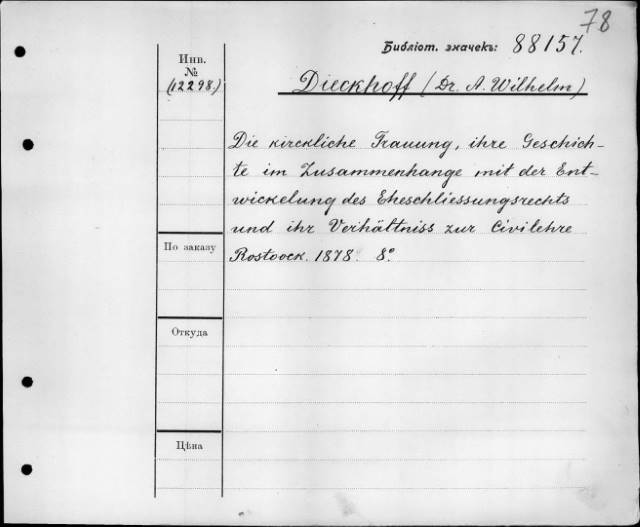 78
Библіот. значекъ: 88157.
Инв.
№
(12298.)
Dieckhoff (Dr. A. Wilhelm)
Die kirckliche Trauung, ihre Geschich-
te im Zusammenhange mit der Ent-
wickelung des Eheschliessungsrechts
und ihr Verhältniss zur Civilehre
По заказу
Rostoock. 1878. 8°.
Откуда
Цѣна